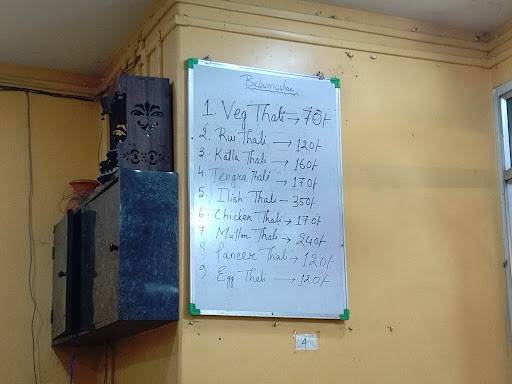 Babumoshai
1. Veg Thali → 70/-
2. Rui Thali → 120/-
3. Katla Thali → 160/-
4 Tengra Thali → 170/-
5. Ilish Thali – 350/-
6. Chicken Thali → 170/-
7 Mutton Thali → 240/-
8 Paneer Thali → 120/-
9 Egg Thali → 120/-
4